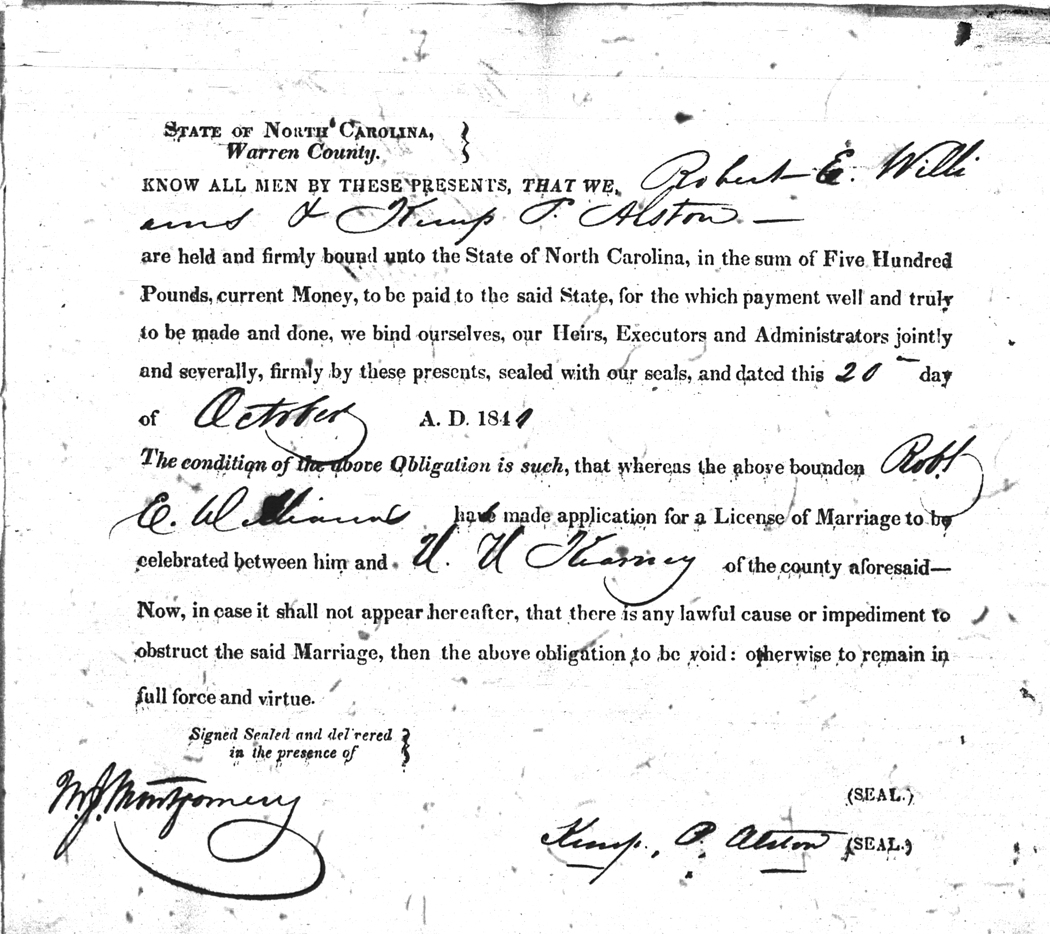 STATE OF NORTH CAROLINA,
Warren County.
KNOW ALL MEN BY THESE PRESENTS, THAT WE, Robert E. Willi
ams & Kemp P. Alston —
are held and firmly bound unto the State of North Carolina, in the sum of Five Hundred
Pounds, current Money, to be paid to the said State, for the which payment well and truly
to be made and done, we bind ourselves, our Heirs, Executors and Administrators jointly
and severally, firmly by these presents, sealed with our seals, and dated this 20 day
of October A. D. 184
The condition of the above Obligation is such, that whereas the above bounden Robt
E. Williams have made application for a License of Marriage to be
celebrated between him and Kearney of the county aforesaid—
Now, in case it shall not appear hereafter, that there is any lawful cause or impediment to
obstruct the said Marriage, then the above obligation to be void: otherwise to remain in
full force and virtue.
Signed Sealed and delivered
in the presence of
W. J. Montgomery
(SEAL.)
Kemp. P. Alston (SEAL.)